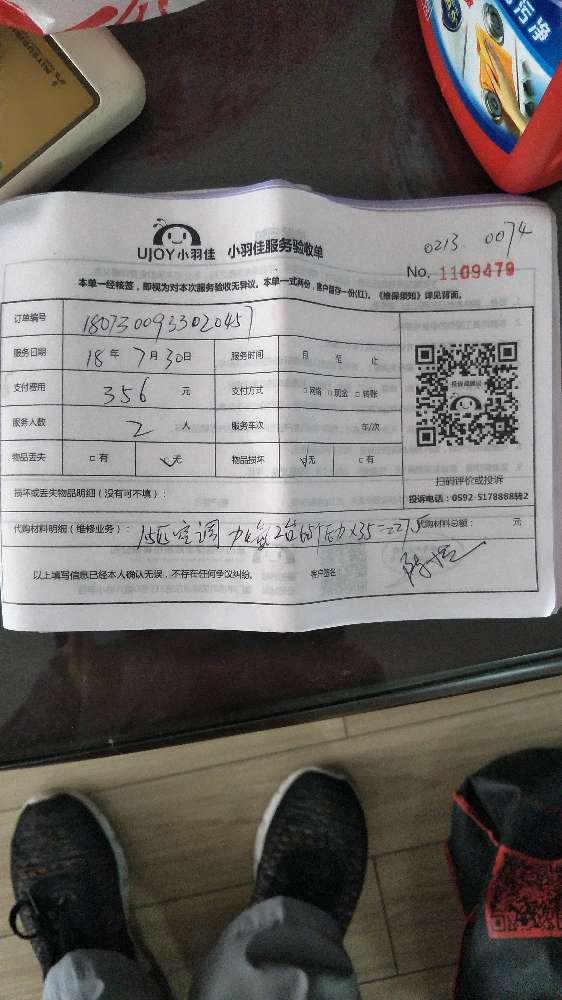 污净
UJOY小羽佳 小羽佳服务验收单
0213 0074
No. 1109479
本单一经核签，即视为对本次服务验收无异议。本单一式两份，客户留存一份(红)。《维保须知》详见背面。
订单编号 1807300933020457
服务日期 18年 7月30日 服务时间 自 至 止
支付费用 356 元 支付方式 □网络 □现金 □转账
服务人数 2 人 服务车次 车/次
物品丢失 □有 ✓无 物品损坏 ✓无 □有
扫码评价或投诉
损坏或丢失物品明细（没有可不填）： 投诉电话：0592-5178888转2
代购材料明细（维修业务）： 空调 2台 X35= 代购材料总额： 元
以上填写信息已经本人确认无误，不存在任何争议纠纷。 客户签名：